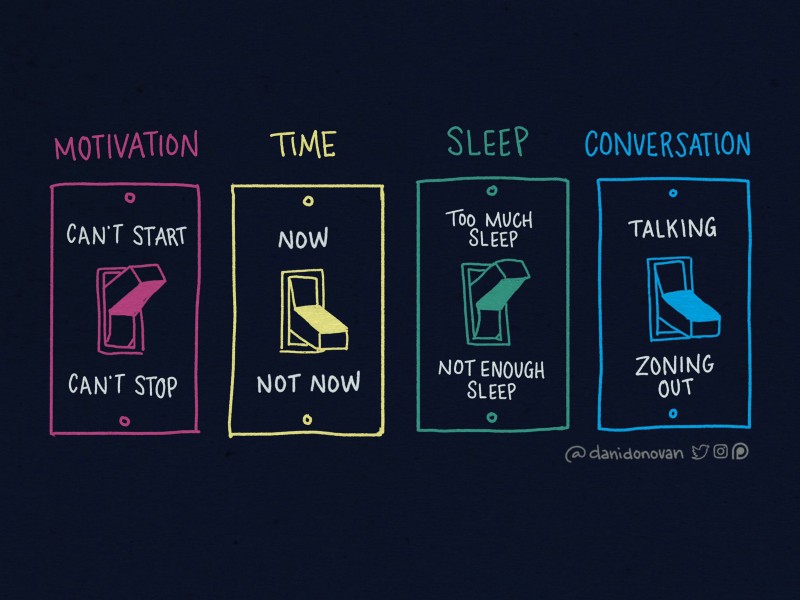 MOTIVATION
CAN'T START
CAN'T STOP
TIME
NOW
NOT NOW
SLEEP
TOO MUCH
SLEEP
NOT ENOUGH
SLEEP
CONVERSATION
TALKING
ZONING
OUT
@danidonovan